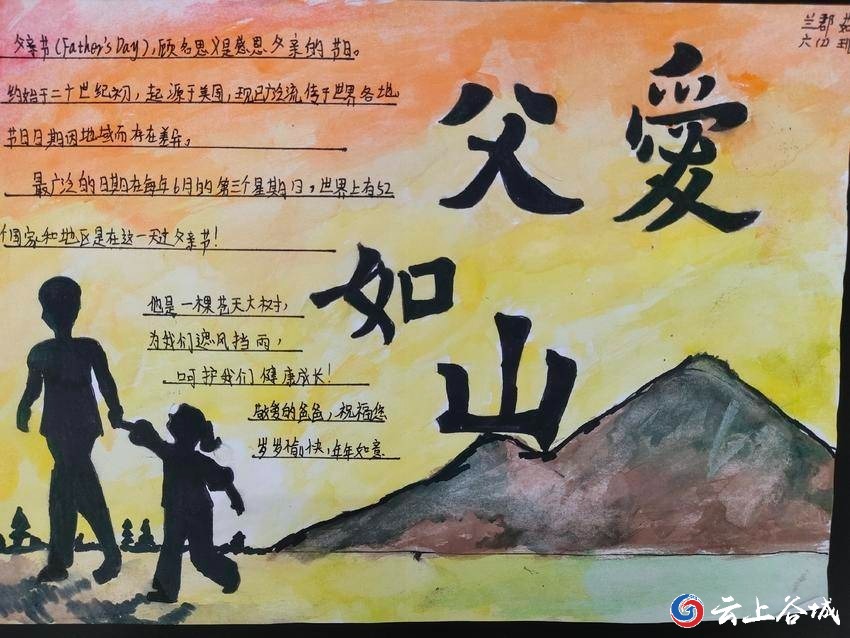 父亲节(Father's Day),顾名思义是感恩父亲的节日。
约始于二十世纪初,起源于美国,现已广泛流传于世界各地
节日日期因地域而存在差异。
最广泛的日期在每年6月的第三个星期日,世界上有52
个国家和地区是在这一天过父亲节!
他是一棵苍天大树,
为我们遮风挡雨,
呵护我们健康成长!
敬爱的爸爸,祝福您
岁岁愉快,年年如意
父爱
如山
兰郡茹
六(1)班
云上谷城